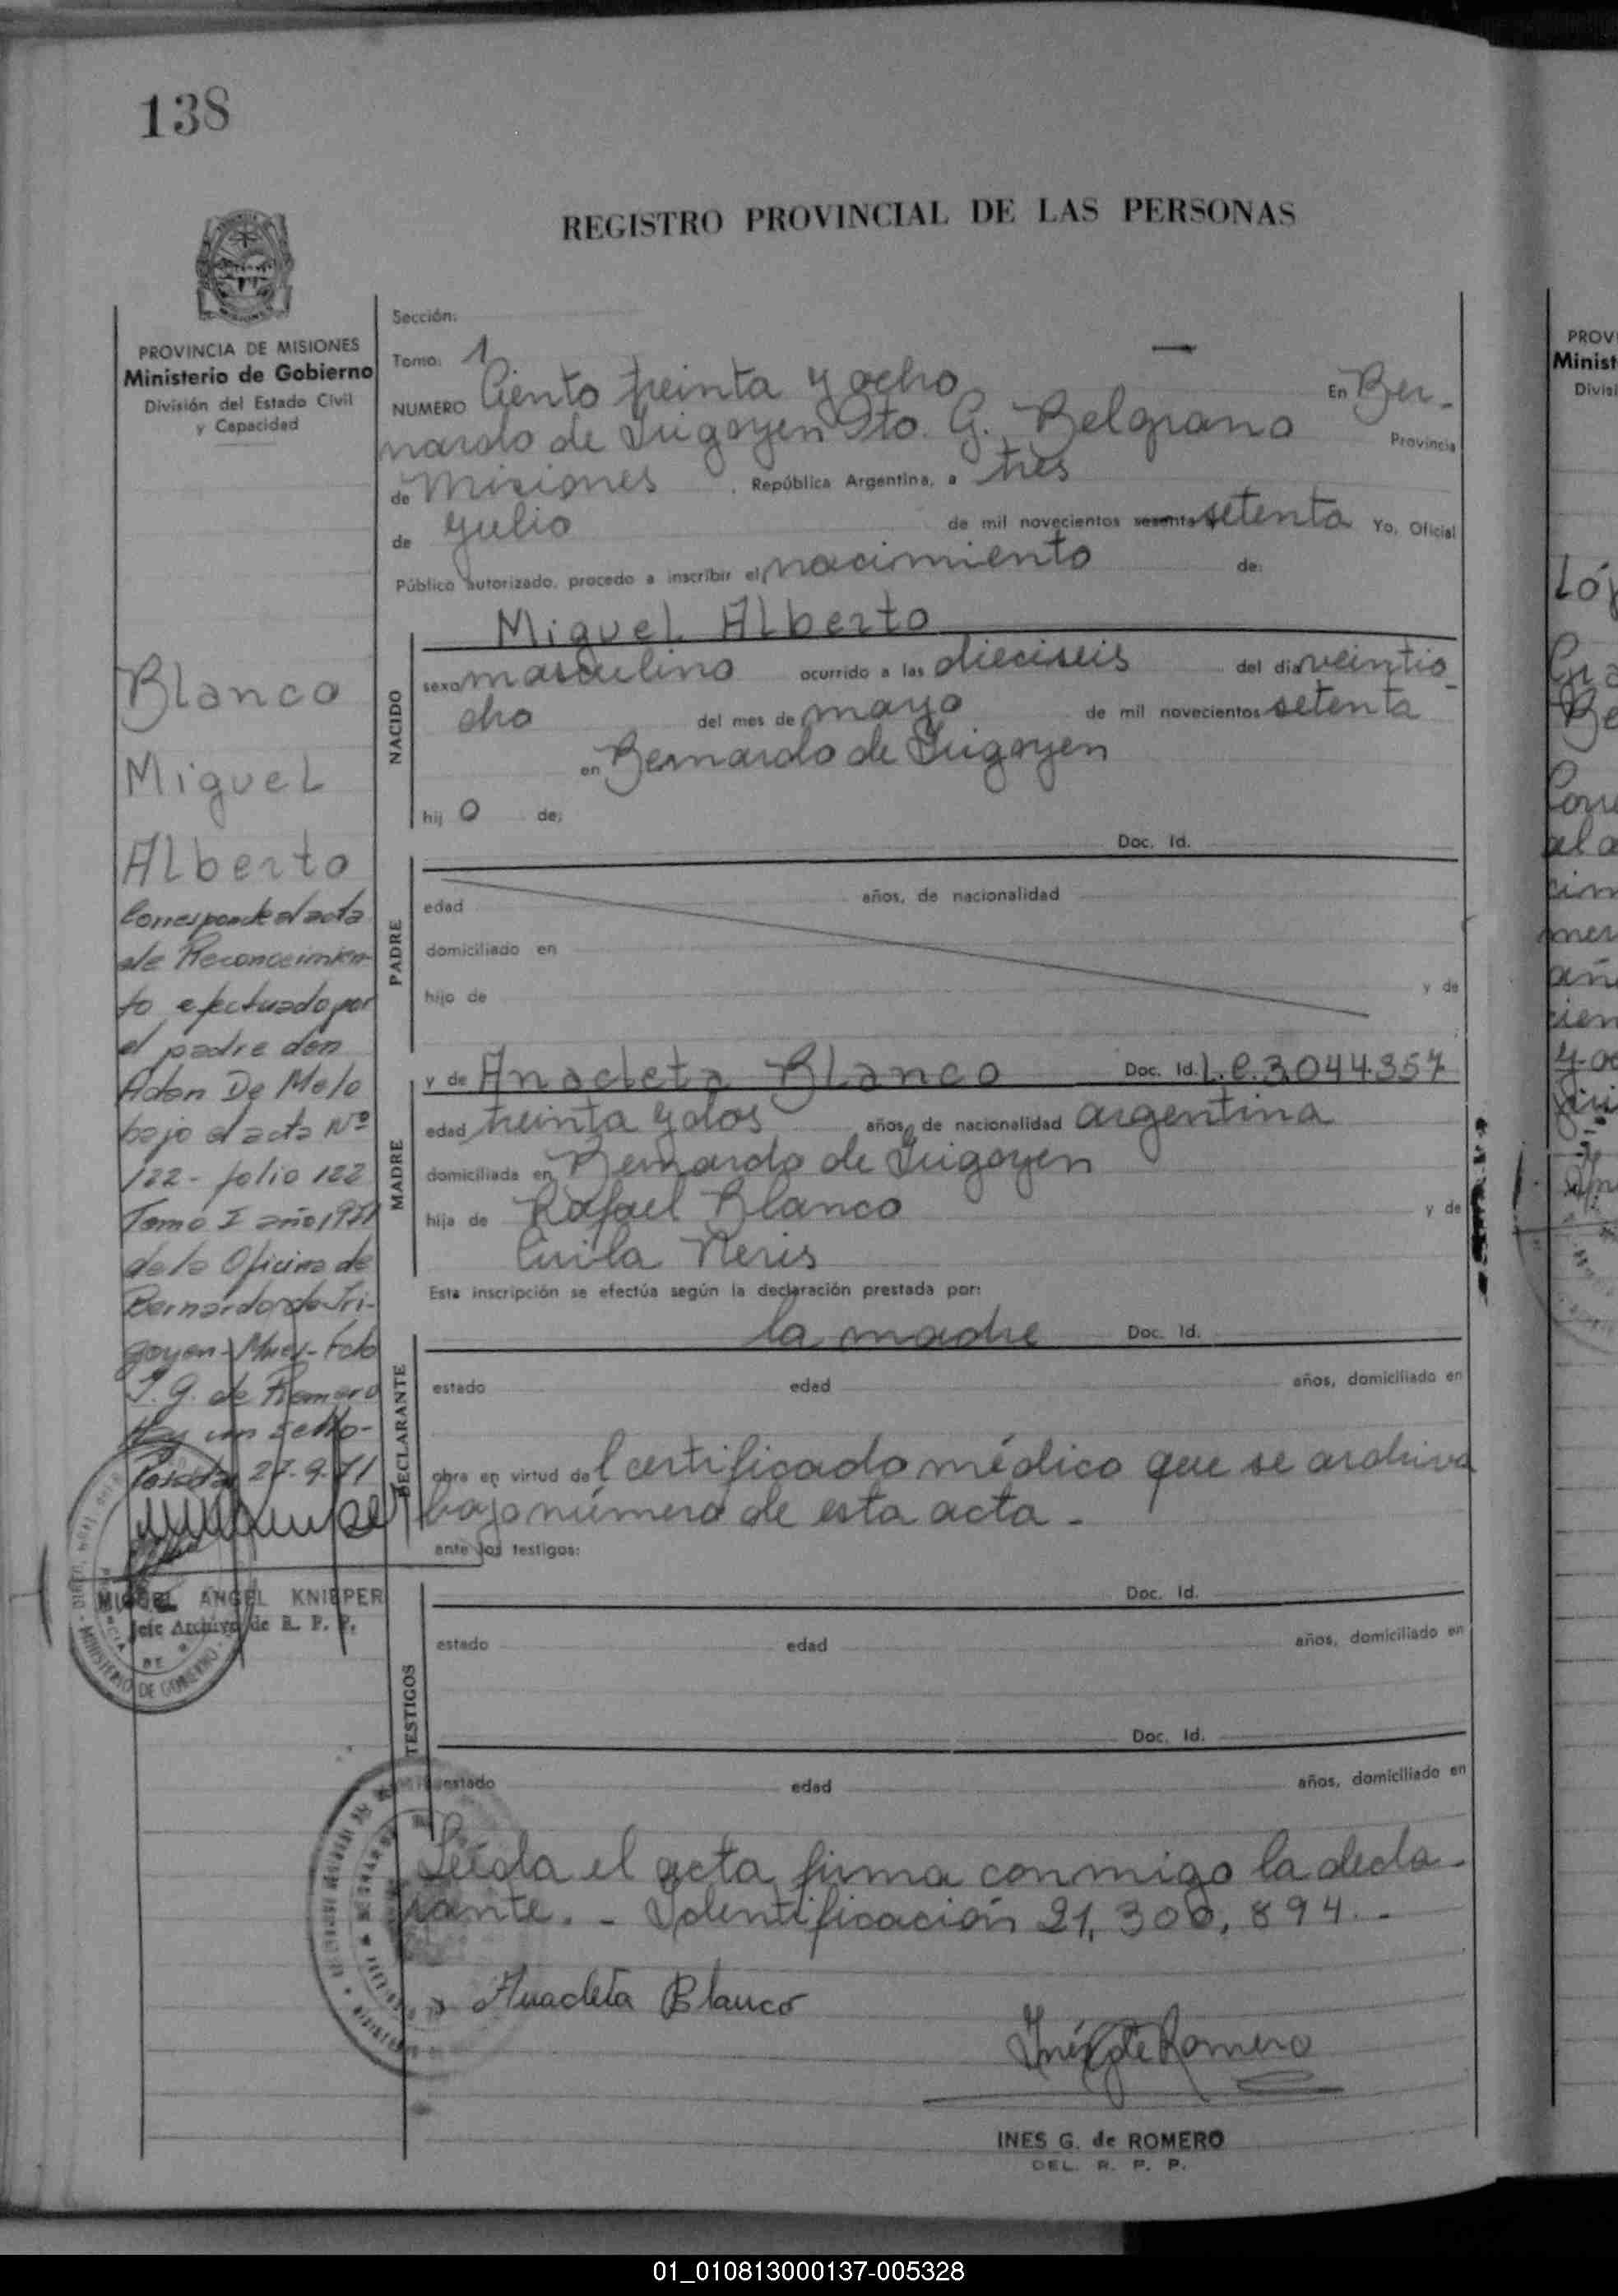 138
REGISTRO PROVINCIAL DE LAS PERSONAS
PROVINCIA DE MISIONES
Ministerio de Gobierno
División del Estado Civil
y Capacidad
Blanco
Miguel
Alberto
Corresponde al acta
de Reconocimien-
to efectuado por
el padre don
Adan De Melo
bajo el acta Nº
122 - folio 122
Tomo I año 1971
de la Oficina de
Bernardo de Iri-
goyen - Mnes - Fdo
I. G. de Romero
Hay un sello -
Posadas 27-9-71
MIGUEL ANGEL KNIEPER
Jefe Archivo de R. P. P.
Sección:
Tomo: 1
NUMERO Ciento treinta y ocho — En Ber-
nardo de Irigoyen Dto. G. Belgrano Provincia
de Misiones, República Argentina, a tres
de julio de mil novecientos sesenta setenta Yo, Oficial
Público autorizado, procedo a inscribir el nacimiento de:
Miguel Alberto
NACIDO
sexo masculino ocurrido a las dieciseis del dia veintio-
cho del mes de mayo de mil novecientos setenta
en Bernardo de Irigoyen
hij o de:
Doc. Id.
PADRE
edad años, de nacionalidad
domiciliado en
hijo de y de
MADRE
y de Anacleta Blanco Doc. Id. L.C. 3.044.357
edad treinta y dos años, de nacionalidad argentina
domiciliada en Bernardo de Irigoyen
hija de Rafael Blanco y de
Neris
Esta inscripción se efectúa según la declaración prestada por:
DECLARANTE
la madre Doc. Id.
estado edad años, domiciliado en
obra en virtud del certificado médico que se archiva
bajo número de esta acta -
ante los testigos:
TESTIGOS
Doc. Id.
estado edad años, domiciliado en
Doc. Id.
estado edad años, domiciliado en
Leída el acta, firma conmigo la decla-
rante. - Identificación 21,300,894. -
Anacleta Blanco
Inés G de Romero
INES G. de ROMERO
DEL. R. P. P.
PROV
Minist
Divisi
01_010813000137-005328